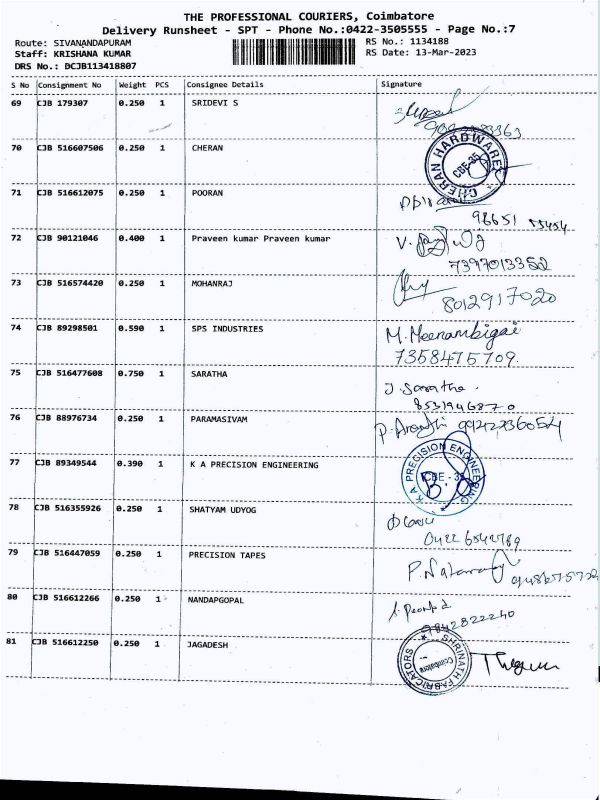 THE PROFESSIONAL COURIERS, Coimbatore
Delivery Runsheet - SPT - Phone No.:0422-3505555 - Page No.:7
Route: SIVANANDAPURAM RS No.: 1134188
Staff: KRISHANA KUMAR RS Date: 13-Mar-2023
DRS No.: DCJB113418807
S No Consignment No Weight PCS Consignee Details Signature
69 CJB 179307 0.250 1 SRIDEVI S
70 CJB 516607506 0.250 1 CHERAN
CHERAN HARDWARES
CBE-35
71 CJB 516612075 0.250 1 POORAN
98651
72 CJB 90121046 0.400 1 Praveen kumar Praveen kumar
7397013352
73 CJB 516574420 0.250 1 MOHANRAJ
8012917020
74 CJB 89298501 0.590 1 SPS INDUSTRIES M. Meenambigai
7358475709
75 CJB 516477608 0.750 1 SARATHA J. Saratha.
8531946870
76 CJB 88976734 0.250 1 PARAMASIVAM
77 CJB 89349544 0.390 1 K A PRECISION ENGINEERING
K A PRECISION ENGINEERING
CBE - 35
78 CJB 516355926 0.250 1 SHATYAM UDYOG
0422 6542789
79 CJB 516447059 0.250 1 PRECISION TAPES
80 CJB 516612266 0.250 1 NANDAPGOPAL
9842822240
81 CJB 516612250 0.250 1 JAGADESH
SHRINATH FABRICATORS
Coimbatore